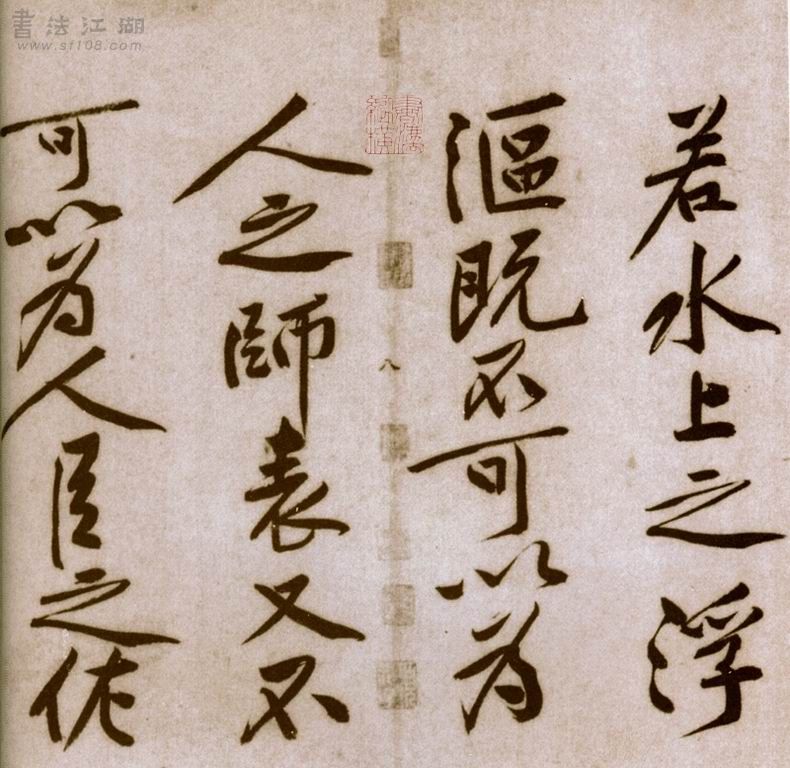 書法江湖
www.sf108.com
若水上之浮
漚既不可以為
人之師表又不
可以為人臣之作